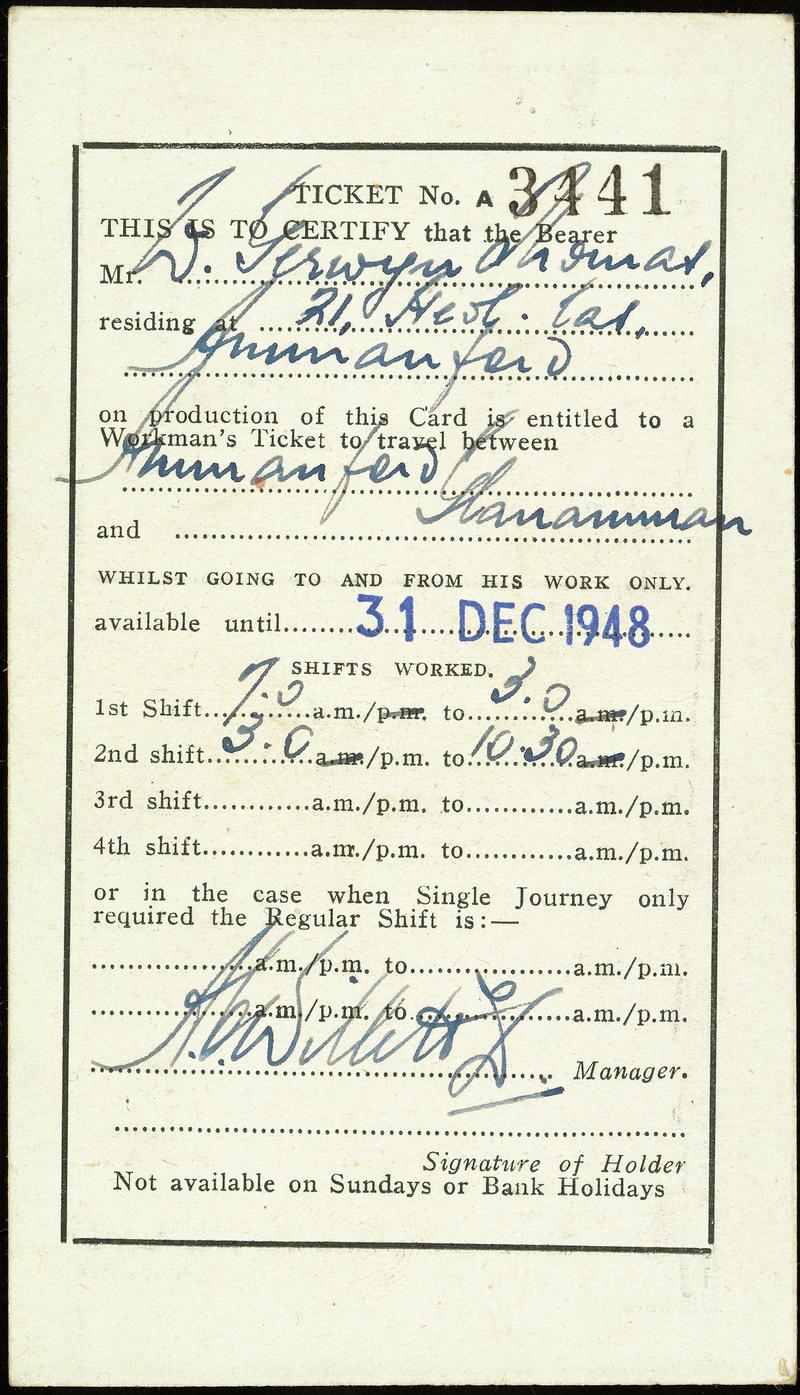 TICKET No. A 3441
THIS IS TO CERTIFY that the Bearer
Mr. D. Terwyn Thomas,
residing at 21, Heol. Las,
Ammanford
on production of this Card is entitled to a
Workman's Ticket to travel between
Ammanford
and Glanamman
WHILST GOING TO AND FROM HIS WORK ONLY.
available until 31 DEC 1948
SHIFTS WORKED.
1st Shift 7.0 a.m./p.m. to 3.0 a.m./p.m.
2nd shift 3.0 a.m./p.m. to 10.30 a.m./p.m.
3rd shift............a.m./p.m. to............a.m./p.m.
4th shift............a.m./p.m. to............a.m./p.m.
or in the case when Single Journey only
required the Regular Shift is:—
..................a.m./p.m. to..................a.m./p.m.
..................a.m./p.m. to..................a.m./p.m.
Willett Manager.
Signature of Holder
Not available on Sundays or Bank Holidays